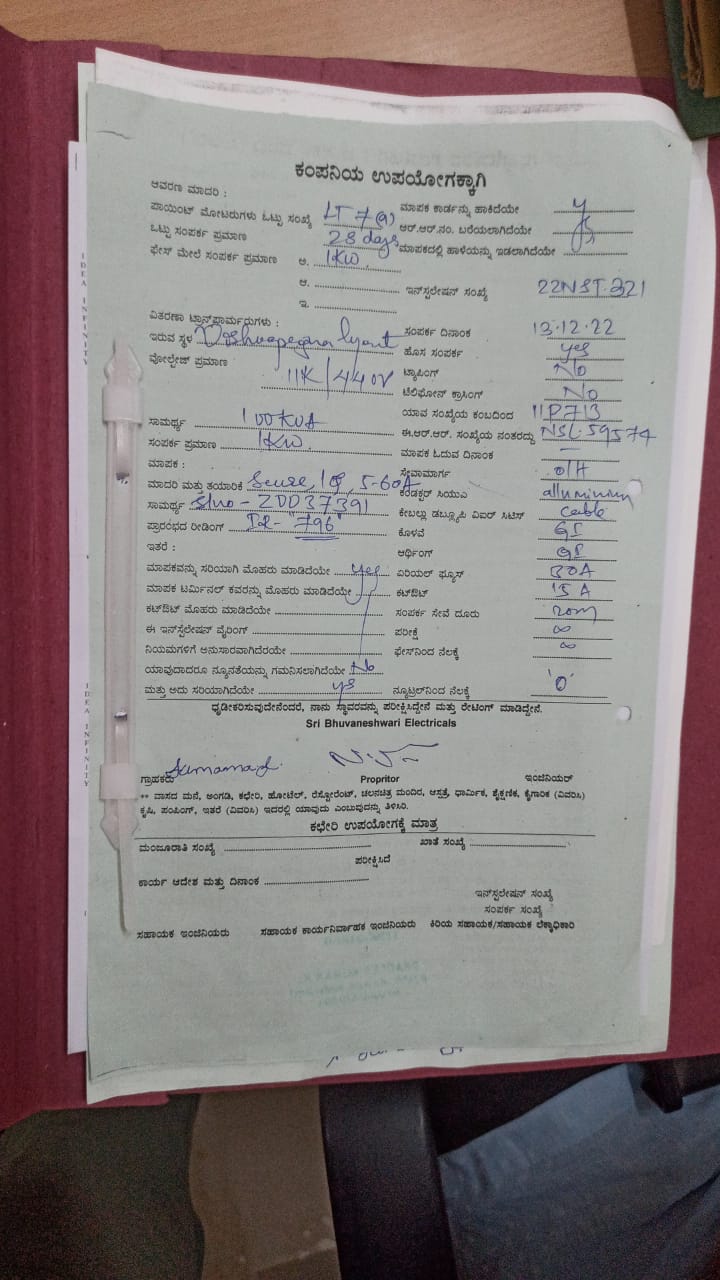 ಕಂಪನಿಯ ಉಪಯೋಗಕ್ಕಾಗಿ
ಆವರಣ ಮಾದರಿ :
ಪಾಯಿಂಟ್ ಮೋಟರುಗಳು ಓಟ್ಟು ಸಂಖ್ಯೆ LT 7(a) ಮಾಪಕ ಕಾರ್ಡನ್ನು ಹಾಕಿದೆಯೇ y
ಒಟ್ಟು ಸಂಪರ್ಕ ಪ್ರಮಾಣ 28 days ಆರ್.ಆರ್.ನಂ. ಬರೆಯಲಾಗಿದೆಯೇ
ಫೇಸ್ ಮೇಲೆ ಸಂಪರ್ಕ ಪ್ರಮಾಣ ಅ. 1KW ಮಾಪಕದಲ್ಲಿ ಹಾಳೆಯನ್ನು ಇಡಲಾಗಿದೆಯೇ
ಆ. ಇನ್‌ಸ್ಟಲೇಷನ್ ಸಂಖ್ಯೆ 22NST.321
ಇ.
ವಿತರಣಾ ಟ್ರಾನ್ಸ್‌ಫಾರ್ಮರುಗಳು : ಸಂಪರ್ಕ ದಿನಾಂಕ 13.12.22
ಇರುವ ಸ್ಥಳ ಹೊಸ ಸಂಪರ್ಕ yes
ವೋಲ್ಟೇಜ್ ಪ್ರಮಾಣ 11K/440V ಟ್ಯಾಪಿಂಗ್ No
ಟೆಲಿಫೋನ್ ಕ್ರಾಸಿಂಗ್ No
ಸಾಮರ್ಥ್ಯ 100KVA ಯಾವ ಸಂಖ್ಯೆಯ ಕಂಬದಿಂದ 11P713
ಸಂಪರ್ಕ ಪ್ರಮಾಣ 1KW ಈ.ಆರ್.ಆರ್. ಸಂಖ್ಯೆಯ ನಂತರದ್ದು NSL.59574
ಮಾಪಕ : ಮಾಪಕ ಓದುವ ದಿನಾಂಕ —
ಮಾದರಿ ಮತ್ತು ತಯಾರಿಕೆ 5-60A ಸೇವಾಮಾರ್ಗ O/H
ಸಾಮರ್ಥ್ಯ Slno - ZDD37391 ಕಂಡಕ್ಟರ್ ಸಿಯುಎ alluminium
ಪ್ರಾರಂಭದ ರೀಡಿಂಗ್ IR - "796" ಕೇಬಲ್ಲು ಡಬ್ಲ್ಯೂಪಿ ವಿಐರ್ ಸಿಟಿಸ್ cable
ಇತರೆ : ಕೊಳವೆ GI
ಆರ್ಥಿಂಗ್ GI
ಮಾಪಕವನ್ನು ಸರಿಯಾಗಿ ಮೊಹರು ಮಾಡಿದೆಯೇ yes ಏರಿಯಲ್ ಫ್ಯೂಸ್ 30A
ಮಾಪಕ ಟರ್ಮಿನಲ್ ಕವರನ್ನು ಮೊಹರು ಮಾಡಿದೆಯೇ ಕಟ್‌ಔಟ್ 15A
ಕಟ್‌ಔಟ್ ಮೊಹರು ಮಾಡಿದೆಯೇ ಸಂಪರ್ಕ ಸೇವೆ ದೂರು 20m
ಈ ಇನ್‌ಸ್ಟಲೇಷನ್ ವೈರಿಂಗ್ ಪರೀಕ್ಷೆ ∞
ನಿಯಮಗಳಿಗೆ ಅನುಸಾರವಾಗಿದೆರಯೇ ಫೇಸ್‌ನಿಂದ ನೆಲಕ್ಕೆ ∞
ಯಾವುದಾದರೂ ನ್ಯೂನತೆಯನ್ನು ಗಮನಿಸಲಾಗಿದೆಯೇ No
ಮತ್ತು ಅದು ಸರಿಯಾಗಿದೆಯೇ ys ನ್ಯೂಟ್ರಲ್‌ನಿಂದ ನೆಲಕ್ಕೆ '0'
ಧೃಡೀಕರಿಸುವುದೇನೆಂದರೆ, ನಾನು ಸ್ಥಾವರವನ್ನು ಪರೀಕ್ಷಿಸಿದ್ದೇನೆ ಮತ್ತು ರೇಟಿಂಗ್ ಮಾಡಿದ್ದೇನೆ.
Sri Bhuvaneshwari Electricals
ಗ್ರಾಹಕರು Propritor ಇಂಜಿನಿಯರ್
** ವಾಸದ ಮನೆ, ಅಂಗಡಿ, ಕಛೇರಿ, ಹೋಟೆಲ್, ರೆಸ್ಟೋರೆಂಟ್, ಚಲನಚಿತ್ರ ಮಂದಿರ, ಆಸ್ಪತ್ರೆ, ಧಾರ್ಮಿಕ, ಶೈಕ್ಷಣಿಕ, ಕೈಗಾರಿಕ (ವಿವರಿಸಿ)
ಕೃಷಿ, ಪಂಪಿಂಗ್, ಇತರೆ (ವಿವರಿಸಿ) ಇದರಲ್ಲಿ ಯಾವುದು ಎಂಬುವುದನ್ನು ತಿಳಿಸಿರಿ.
ಕಛೇರಿ ಉಪಯೋಗಕ್ಕೆ ಮಾತ್ರ
ಮಂಜೂರಾತಿ ಸಂಖ್ಯೆ ಖಾತೆ ಸಂಖ್ಯೆ
ಪರೀಕ್ಷಿಸಿದೆ
ಕಾರ್ಯ ಆದೇಶ ಮತ್ತು ದಿನಾಂಕ
ಇನ್‌ಸ್ಪಲೇಷನ್ ಸಂಖ್ಯೆ
ಸಂಪರ್ಕ ಸಂಖ್ಯೆ
ಸಹಾಯಕ ಇಂಜಿನಿಯರು ಸಹಾಯಕ ಕಾರ್ಯನಿರ್ವಾಹಕ ಇಂಜಿನಿಯರು ಕಿರಿಯ ಸಹಾಯಕ/ಸಹಾಯಕ ಲೆಕ್ಕಾಧಿಕಾರಿ
IDEA INFINITY
IDEA INFINITY